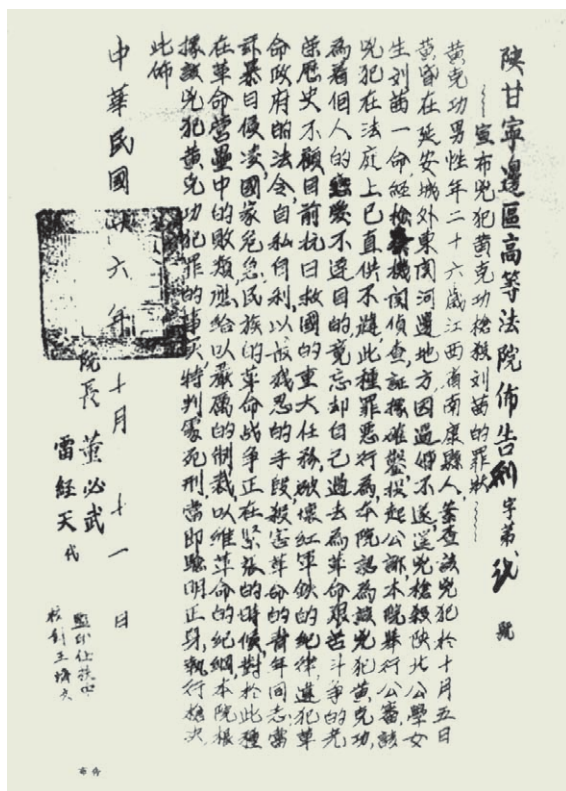 陝甘寧邊區高等法院佈告 刑字第 號
宣布兇犯黃克功槍殺刘茜的罪狀
黃克功男性年二十六歲江西省南康縣人，案查該兇犯於十月五日
黃昏在延安城外東関河邊地方因逼婚不遂逞兇槍殺陝北公學女
生刘茜一命，經檢察機関偵查，証據確鑿，提起公訴，本院舉行公審，該
兇犯在法庭上已直供不諱，此種罪惡行為，本院認為該兇犯黃克功，
為着個人的戀愛不遂目的，竟忘却自己過去為革命艱苦斗争的光
榮歷史，不顧目前抗日救國的重大任務，破壞紅軍鉄的紀律，違犯革
命政府的法令，自私自利，以殘殺的手段，殺害革命的青年同志，當
茲暴日侵凌，國家危急，民族的革命战争正在緊張的時候，對於此種
在革命營壘中的敗類，應給以嚴厲的制裁，以維革命的紀綱，本院根
據該兇犯黃克功犯罪的事实，特判處死刑，當即驗明正身，執行槍决，
此佈
中華民國 六年十月十一日
院長 董必武
雷經天 代
布告